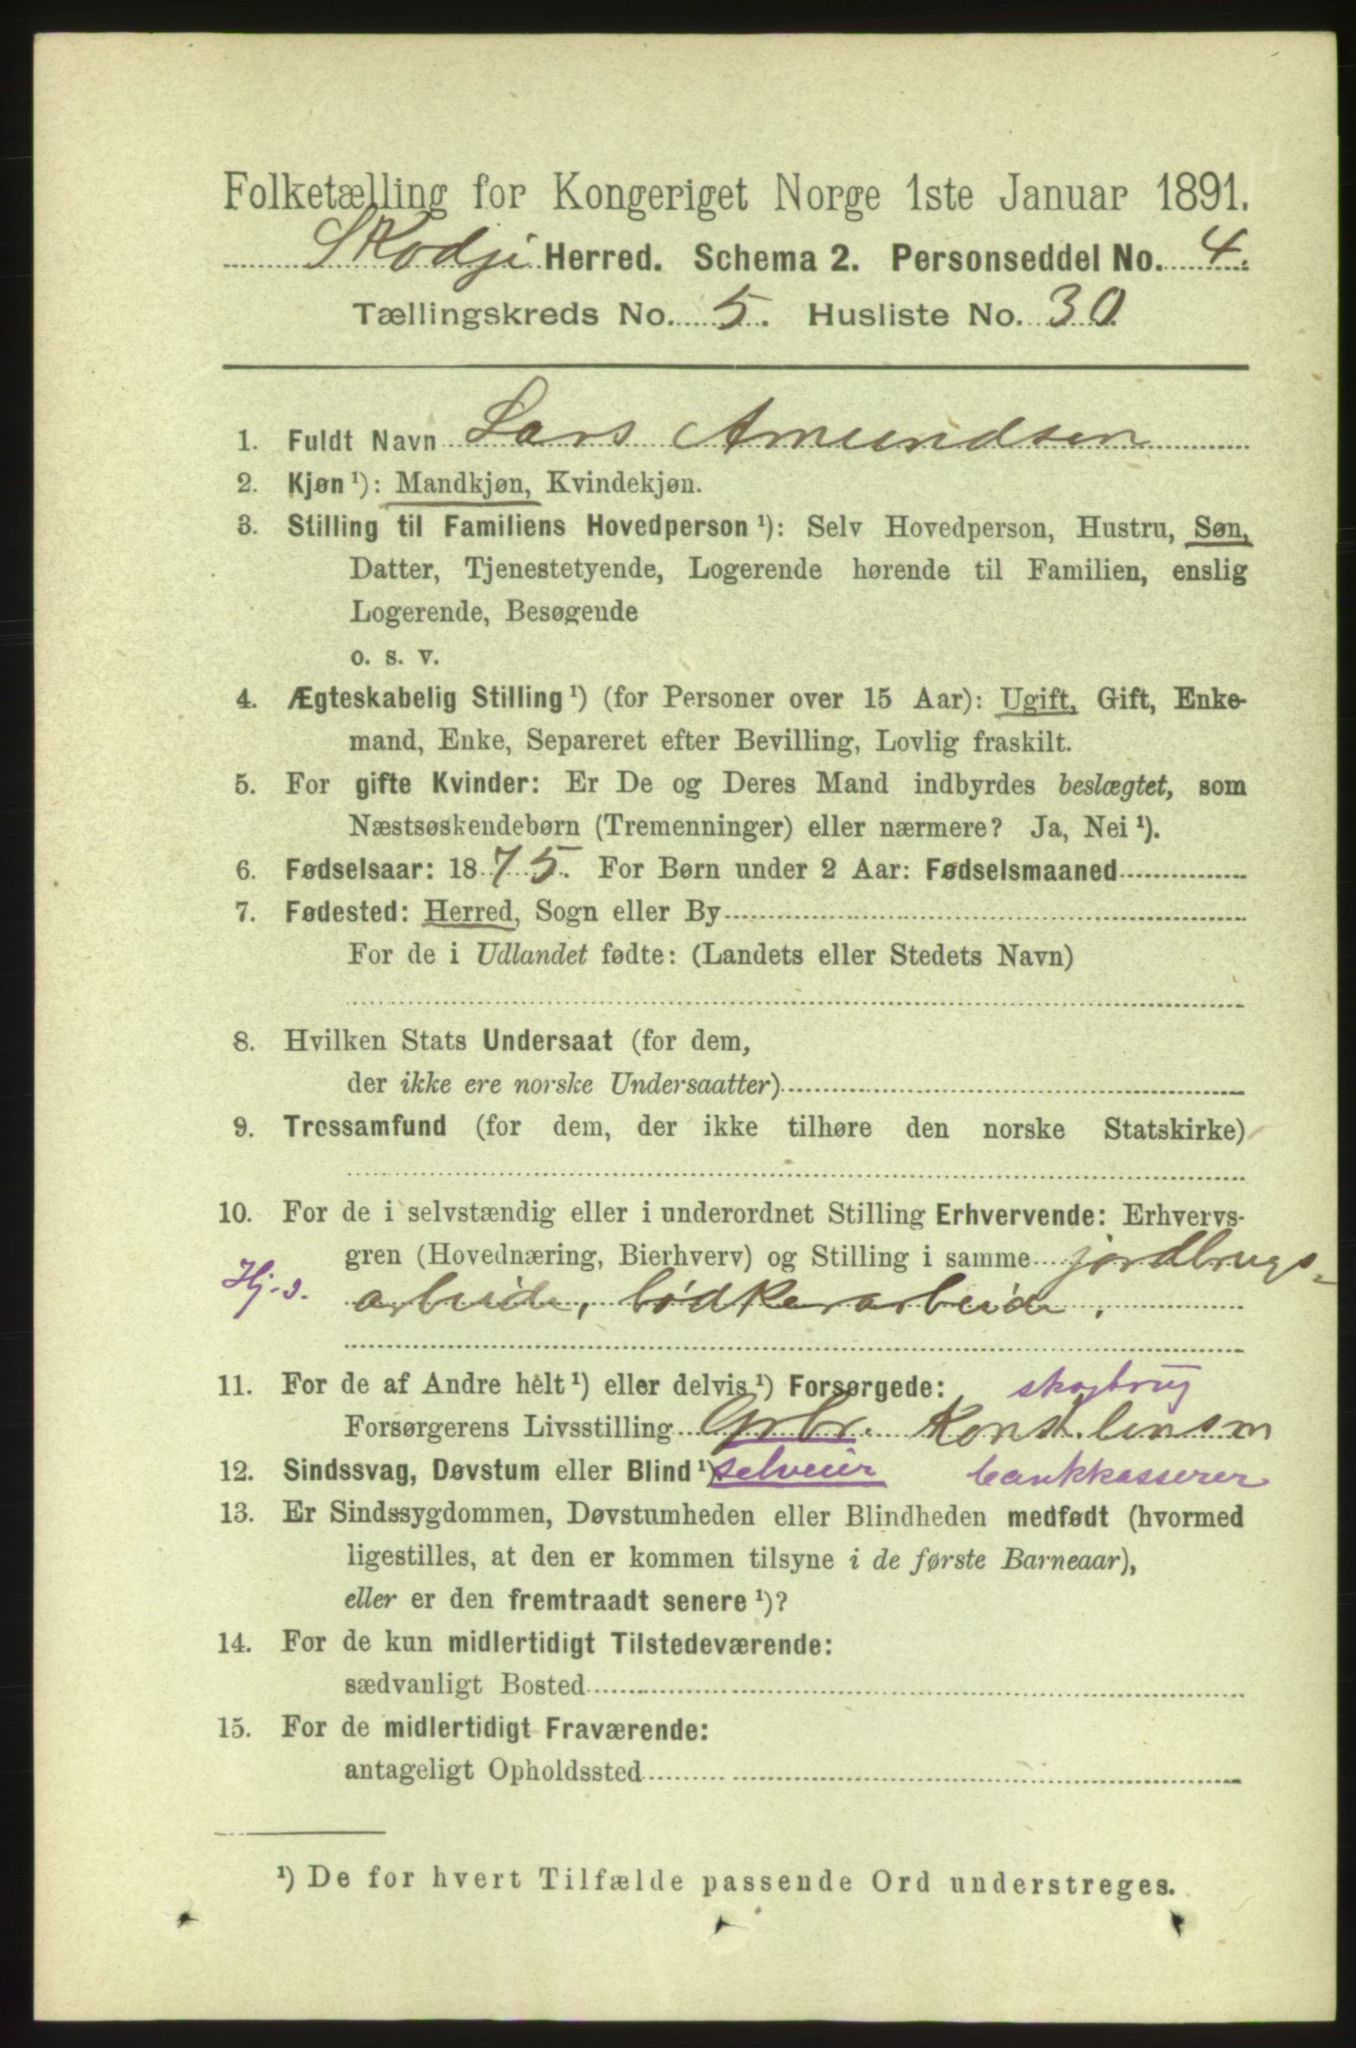 Folketælling for Kongeriget Norge 1ste Januar 1891.
Skodje Herred. Schema 2. Personseddel No. 4.
Tællingskreds No. 5. Husliste No. 30
1. Fuldt Navn Lars Amundsen
2. Kjøn ¹): Mandkjøn, Kvindekjøn.
3. Stilling til Familiens Hovedperson ¹): Selv Hovedperson, Hustru, Søn,
Datter, Tjenestetyende, Logerende hørende til Familien, enslig
Logerende, Besøgende
o. s. v.
4. Ægteskabelig Stilling ¹) (for Personer over 15 Aar): Ugift, Gift, Enke-
mand, Enke, Separeret efter Bevilling, Lovlig fraskilt.
5. For gifte Kvinder: Er De og Deres Mand indbyrdes beslægtet, som
Næstsøskendebørn (Tremenninger) eller nærmere? Ja, Nei ¹).
6. Fødselsaar: 1875. For Børn under 2 Aar: Fødselsmaaned
7. Fødested: Herred, Sogn eller By
For de i Udlandet fødte: (Landets eller Stedets Navn)
8. Hvilken Stats Undersaat (for dem,
der ikke ere norske Undersaatter)
9. Trossamfund (for dem, der ikke tilhøre den norske Statskirke)
10. For de i selvstændig eller i underordnet Stilling Erhvervende: Erhvervs-
gren (Hovednæring, Bierhverv) og Stilling i samme jordbrugs-
Hj. s. arbeide, bødkerarbeide.
11. For de af Andre helt ¹) eller delvis ¹) Forsørgede: skogbrug
Forsørgerens Livsstilling Grbr. Konst. lensm
12. Sindssvag, Døvstum eller Blind ¹) selveier bankkasserer
13. Er Sindssygdommen, Døvstumheden eller Blindheden medfødt (hvormed
ligestilles, at den er kommen tilsyne i de første Barneaar),
eller er den fremtraadt senere ¹)?
14. For de kun midlertidigt Tilstedeværende:
sædvanligt Bosted
15. For de midlertidigt Fraværende:
antageligt Opholdssted
¹) De for hvert Tilfælde passende Ord understreges.